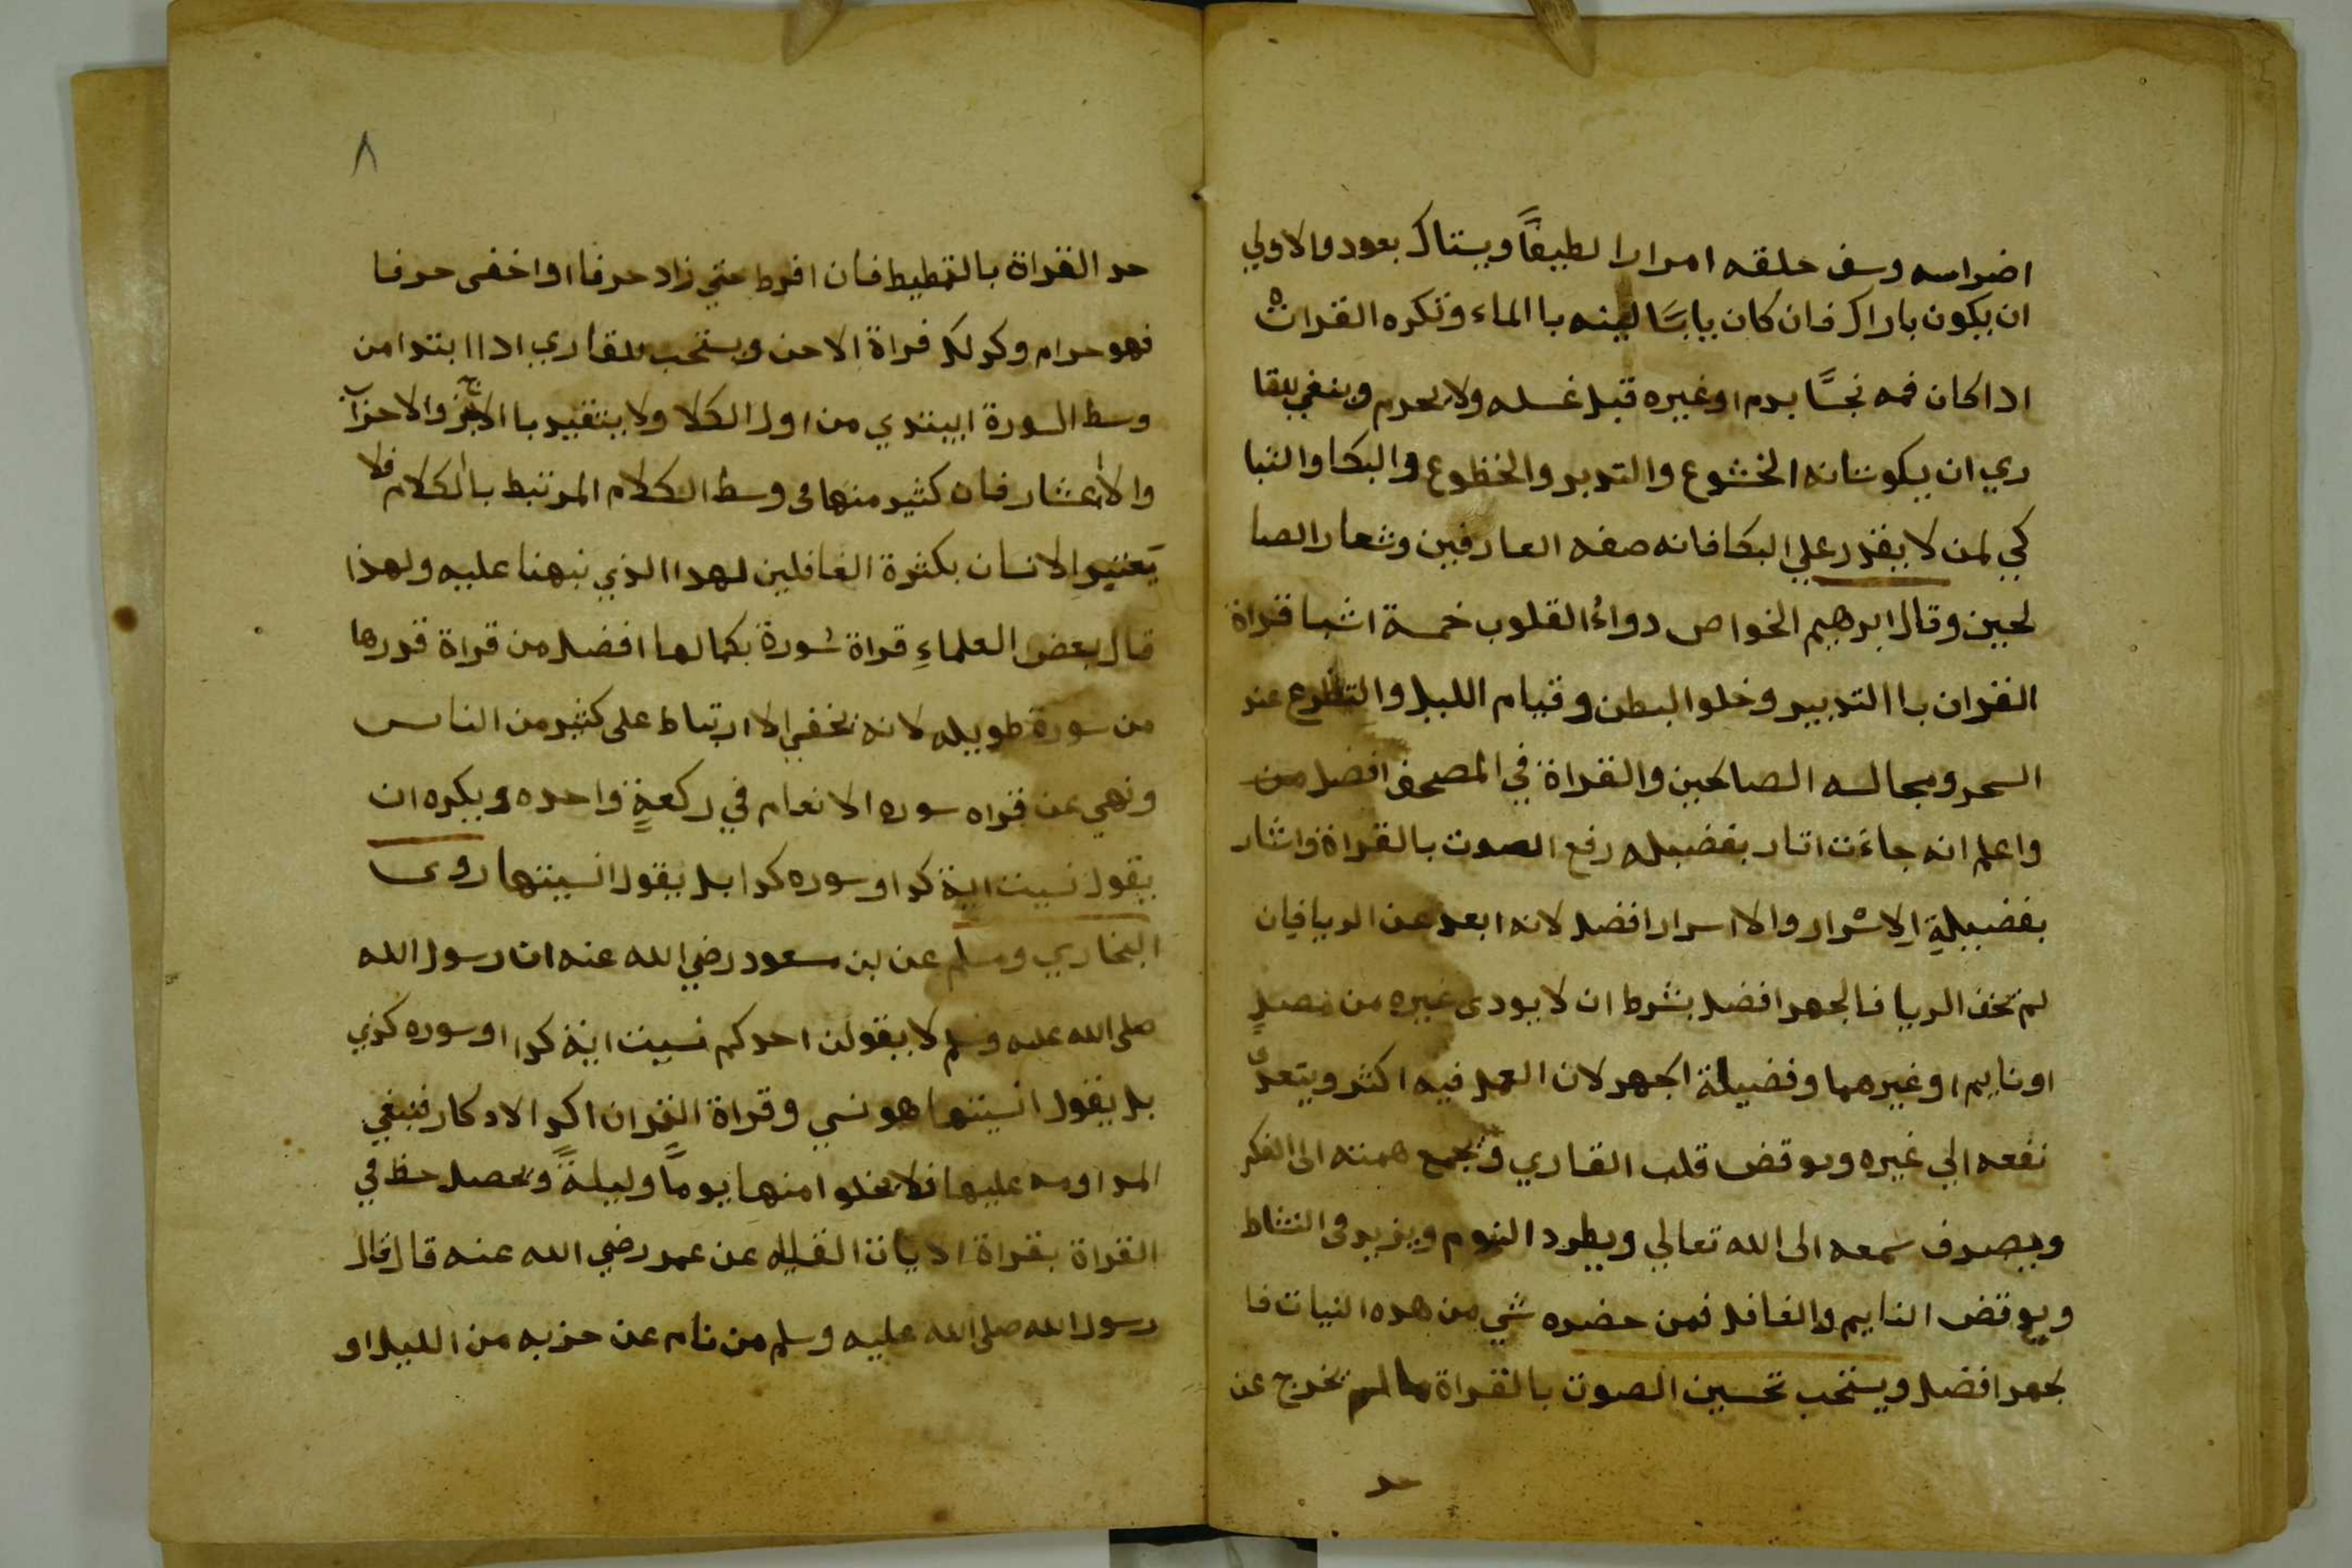 اضراسه وسف حلقه امرارا لطيفاً ويستاك بعود والاولي
ان يكون باراك فان كان يابسًا لينه باالماء وتكره القراة
اداكان فمه نجسًا بدم اوغيره قبل غسله ولا يحرم وينغي للقا
ري ان يكون شانه الخشوع والتدبر والخظوع والبكا والتبا
كي لمن لا يقدر علي البكا فانه صفه العارفين وشعار الصا
لحين وقال ابرهيم الخواص دواءُ القلوب خمسة اشيا قراة
القران باالتدبير وخلو البطن وقيام الليل والتظرع عند
السحر ومجالسه الصالحين والقراة في المصحف افضل من
واعلم انه جاءَت اثار بفضيله رفع الصوت بالقراة واثار
بفضيلةِ الاسْرار والااسرار افضل لانه ابعد عن الريا فان
لم تخف الريا فالجهر افضل بشرط ان لا يودى غيره من مصلٍ
اونايم اوغيرهما وفضيلة الجهر لان العمل فيه اكثر ويتعدى
نفعه الي غيره ويوقض قلب القاري ويجمع همته الى الفكر
ويصرف سمعه الى الله تعالي ويطرد النوم ويزيد في النشاط
ويوقض النايم والغافل فمن حضره شي من هده النيات فا
لجهر افضل ويستحب تحسين الصوت بالقراة مالم تخرج عن
حد
٨
حد القراة بالتمطيط فان افرط حتي زاد حرفا او اخفى حرفا
فهو حرام وكدلك قراة الاحن ويستحب للقاري اداابتدا من
وسط السورة ايبتدي من اول الكلا ولا يتقيد باالاجز والاحزاب
والاعشار فان كثير منها في وسط الكلام المرتبط بالكلام فلا
يَغتير الانسان بكثرة الغافلين لهدا الذي نبهنا عليه ولهذا
قال بعض العلماءِ قراة سُورة بكمالها افضل من قراة قدرها
من سورة طويله لانه يخفي الاارتباط على كثير من الناس
ونهي عن قراه سوره الانعام في ركعةٍ واحده ويكره ان
يقول نسيت اية كدا او سوره كدا بل يقول انسيتها روى
البخاري ومسلم عن بن مسعود رضي الله عنه ان رسول الله
صلى الله عليه وسلم لا يقولن احدكم نسيت اية كدا او سوره كذي
بل يقول انسيتها هو نسي وقراة القران اكد الادكار فنبغي
المداومه عليها فلا يخلوا منها يومًا وليلةً ويحصل حظ في
القراة بقراة الايات القليله عن عمر رضي الله عنه قال قال
رسول الله صلى الله عليه وسلم من نام عن حزبه من الليل او